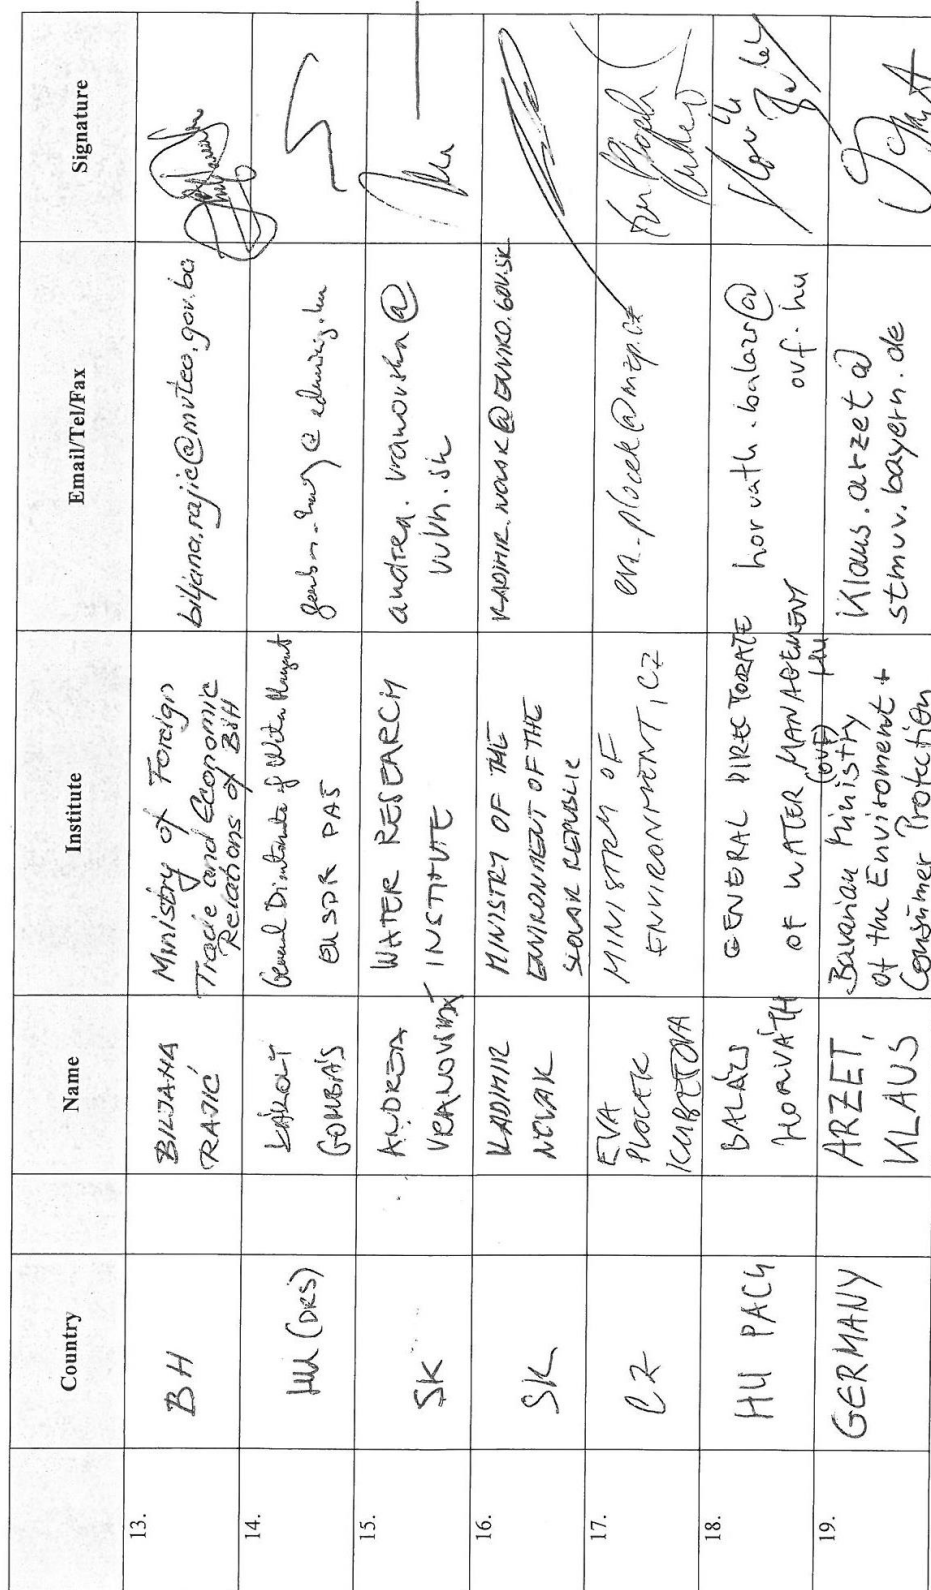 Country Name Institute Email/Tel/Fax Signature
13. BH BILJANA RAJIĆ Ministry of Foreign Trade and Economic Relations of B&H biljana.rajic@mvteo.gov.ba
14. HU (DRS) KÁROLY GOMBÁS General Directorate of Water EUSDR PA5
15. SK ANDREA VRANOVSKÁ WATER RESEARCH INSTITUTE andrea.vranovska@ vuvh.sk
16. SK VLADIMIR NOVAK MINISTRY OF THE ENVIRONMENT OF THE SLOVAK REPUBLIC VLADIMIR.NOVAK@ENVIRO.GOV.SK
17. CZ EVA PLOCEK KUBETOVA MINISTRY OF ENVIRONMENT, CZ
18. HU PAC4 BALÁZS HORVÁTH GENERAL DIRECTORATE OF WATER MANAGEMENT (OVF) HU horvath.balazs@ ovf.hu
19. GERMANY ARZET, KLAUS Bavarian Ministry of the Enviroment + Consumer Protection Klaus.arzet@ stmuv.bayern.de